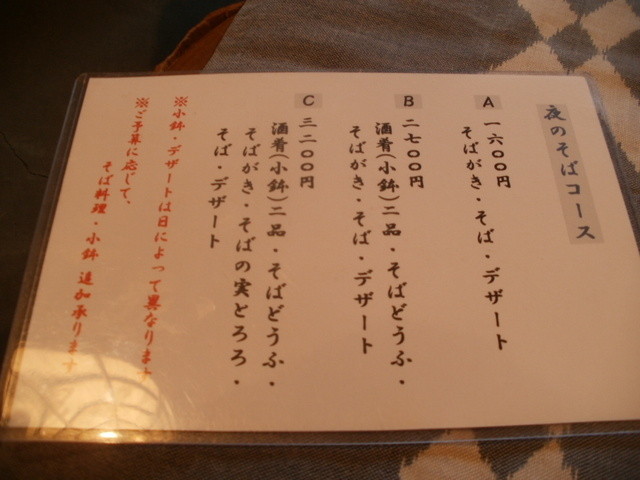 夜のそばコース
A 一六〇〇円
そばがき・そば・デザート
B 二七〇〇円
酒肴(小鉢)二品・そばどうふ・
そばがき・そば・デザート
C 三二〇〇円
酒肴(小鉢)二品・そばどうふ・
そばがき・そばの実とろろ・
そば・デザート
※小鉢・デザートは日によって異なります
※ご予算に応じて、
そば料理・小鉢 追加承ります